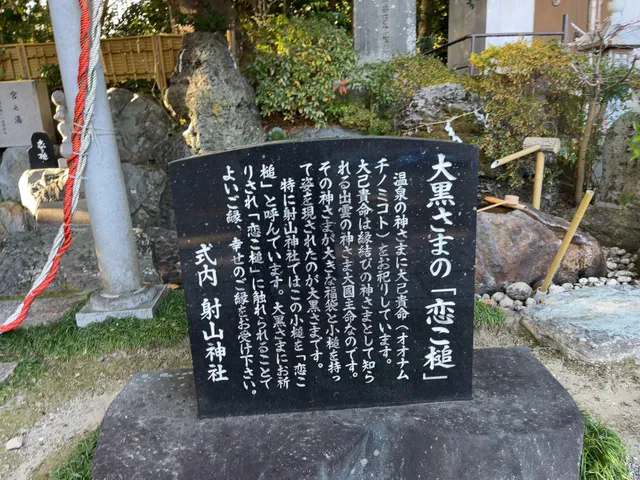 大黒さまの「恋こ槌」
温泉の神さまに大己貴命（オオナム
チノミコト）をお祀りしています。
大己貴命は縁結びの神さまとして知ら
れる出雲の神さま大国主命なのです。
その神さまが大きな福袋と小槌を持っ
て姿を現されたのが大黒さまです。
特に射山神社ではこの小槌を「恋こ
槌」と呼んでいます。大黒さまにお祈
りされ「恋こ槌」に触れられることで
よいご縁、幸せのご縁をお受け下さい。
式内 射山神社
宮之湯